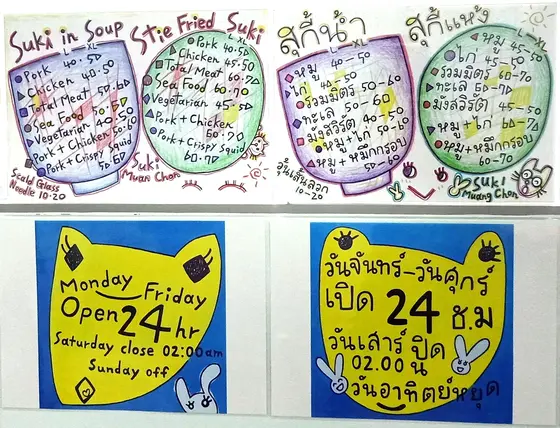 Suki in Soup
L - XL
Pork 40.50
Chicken 40.50
Total Meat 50.60
Sea Food 50.60
Vegetarian 40.50
Pork+Chicken 50.60
Pork+Crispy Squid
50.60
Scald Glass
Noodle 10.20
Stie Fried Suki
L - XL
Pork 40.50
Chicken 45.50
Total Meat 60.70
Sea Food 60.70
Vegetarian 45.50
Pork+Chicken
60.70
Pork+Crispy Squid
60.70
Suki
Muan Chon
สุกี้น้ำ
L - XL
หมู 40-50
ไก่ 40-50
รวมมิตร 50-60
ทะเล 50-60
มังสวิรัติ 40-50
หมู+ไก่ 50-60
หมู+หมึกกรอบ
50-60
วุ้นเส้นลวก
10-20
สุกี้แห้ง
L - XL
หมู 45-50
ไก่ 45-50
รวมมิตร 60-70
ทะเล 60-70
มังสวิรัติ 45-50
หมู+ไก่ 60-70
หมู+หมึกกรอบ
60-70
Suki
Muang Chon
Monday - Friday
Open 24 hr
Saturday close 02:00am
Sunday off
วันจันทร์-วันศุกร์
เปิด 24 ช.ม
วันเสาร์ ปิด
02.00 น
วันอาทิตย์หยุด